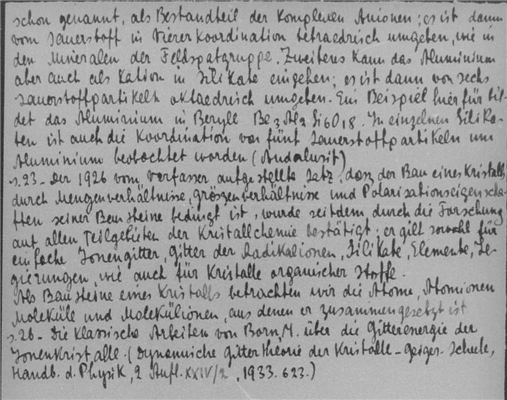 schon genannt, als Bestandteil der Komplexen Anionen; es ist dann
vom Sauerstoff in Viererkoordination tetraedrisch umgeben, wie in
den Mineralen der Feldspatgruppe. Zweitens kann das Aluminium
aber auch als Kation in Silikate eingehen; es ist dann von sechs
Sauerstoffpartikeln oktaedrisch umgeben. Ein Beispiel hierfür bil-
det das Aluminium in Beryll Be3Al2Si6O18. In einzelnen Silika-
ten ist auch die Koordination von fünf Sauerstoffpartikeln um
Aluminium beobachtet worden (Andalusit)
s.23- Der 1926 vom Verfasser aufgestellte Satz, dasz der Bau eines Kristalls
durch Mengenverhältnisse, Grössenverhältnisse und Polarisationseigenscha-
ften seiner Bausteine bedingt ist, wurde seitdem durch die Forschung
auf allen Teilgebieten der Kristallchemie bestätigt; er gilt sowohl für
einfache Ionengitter, Gitter der Radikalionen, Silikate, Elemente, Le-
gierungen, wie auch für Kristalle organischer Stoffe.
Als Bausteine eines Kristalls betrachten wir die Atome, Atomionen
Moleküle und Molekülionen, aus denen er zusammengesetzt ist
s.26- Die Klassische Arbeiten von Born, M. über die Gitterenergie der
Ionenkristalle. (Dynamische Gittertheorie der Kristalle - Geiger. Scheele,
Handb. d. Physik, 2 Aufl. XXIV/2, 1933. 623.)